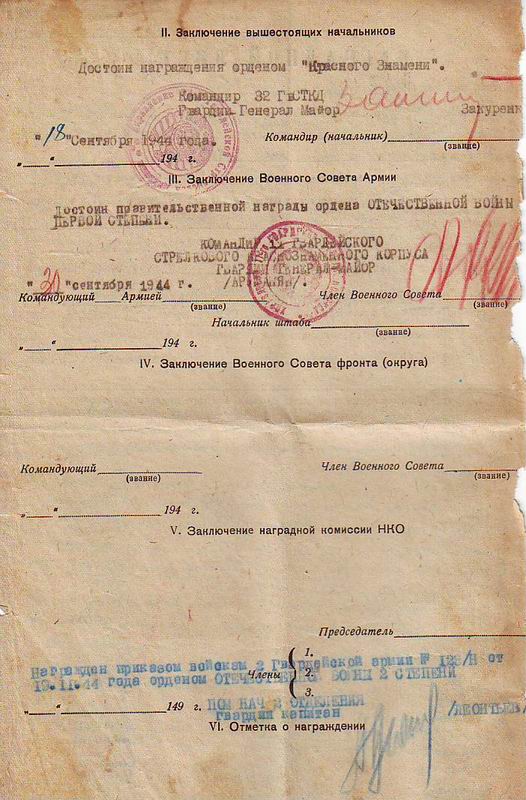 II. Заключение вышестоящих начальников
Достоин награждения орденом "Красного Знамени".
Командир 32 ГвСТКД
Гвардии Генерал Майор Закуренк
"18" Сентября 1944 года.
Командир (начальник)
(звание)
„ “ 194 г.
III. Заключение Военного Совета Армии
Достоин правительственной награды ордена ОТЕЧЕСТВЕННОЙ ВОЙНЫ
ПЕРВОЙ СТЕПЕНИ.
КОМАНДИР 11 ГВАРДЕЙСКОГО
СТРЕЛКОВОГО КРАСНОЗНАМЕННОГО КОРПУСА
ГВАРДИИ ГЕНЕРАЛ-МАЙОР
"20" сентября 1944 г.
Командующий Армией Член Военного Совета
(звание) (звание)
Начальник штаба
(звание)
„ “ 194 г.
IV. Заключение Военного Совета фронта (округа)
Командующий Член Военного Совета
(звание) (звание)
„ “ 194 г.
V. Заключение наградной комиссии НКО
Председатель
1.
Члены 2.
3.
Награжден приказом войскам 2 Гвардейской армии № 123/Н от
19.11.44 года орденом ОТЕЧЕСТВЕННОЙ ВОЙНЫ 2 СТЕПЕНИ
„ “ 149 г. ПОМ НАЧ 2 ОТДЕЛЕНИЯ
гвардии капитан /ЛЕОНТЬЕВ/
VI. Отметка о награждении